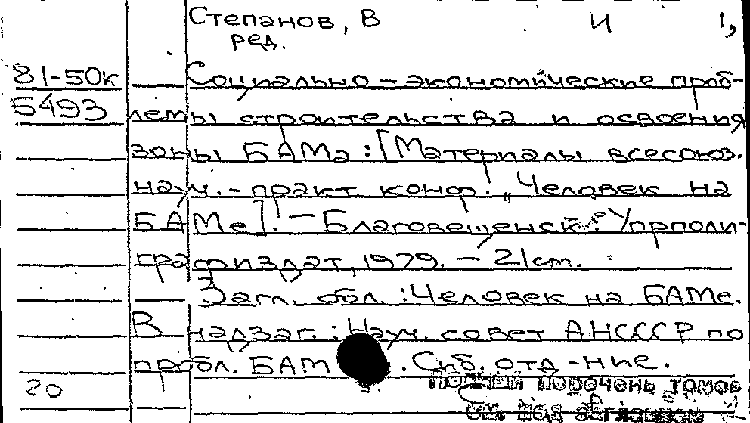 Степанов, В И 1,
ред.
81-50к Социально-экономические проб-
5493 лемы строительства и освоения
зоны БАМа: [Материалы всесоюз.
науч.-практ конф. „Человек на
БАМе]. — Благовещенск: Упрполи-
графиздат, 1979. — 21cm.
Загл. обл.: Человек на БАМе.
В надзаг.: Науч. совет АНСССР по
пробл. БАМ . Сиб. отд-ние.
20 полный перечень томов
см. под заглавием